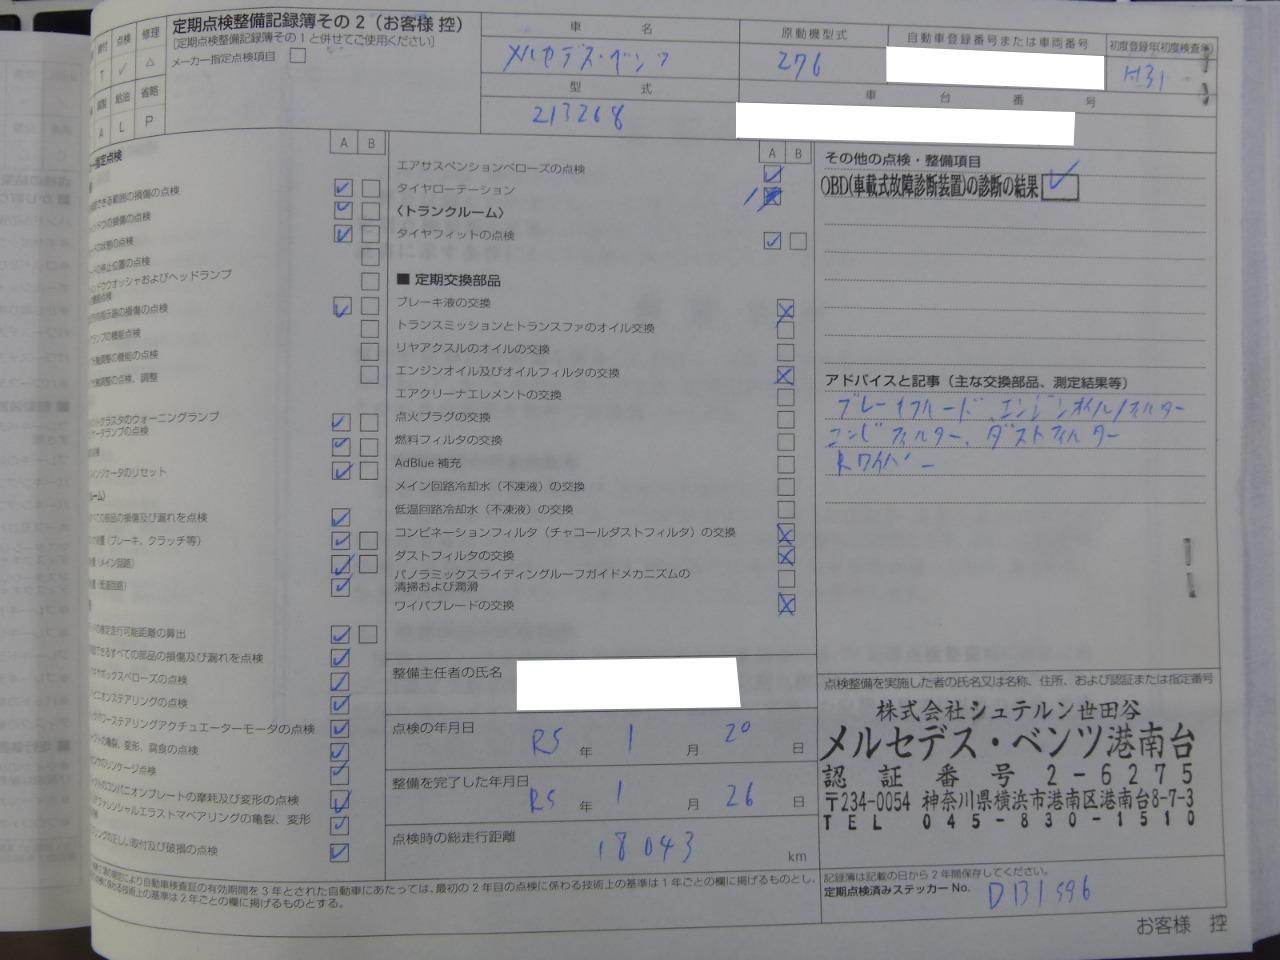 定期点検整備記録簿その2（お客様 控）
[定期点検整備記録簿その1と併せてご使用ください]
メーカー指定点検項目
点検 修理
T ✓ △
給油 省略
A L P
車 名
メルセデス・ベンツ
原動機型式
276
自動車登録番号または車両番号
初度登録年(初度検査年)
H31
型 式
213268
車 台 番 号
A B
指定点検
範囲の損傷の点検
の損傷の点検
の状態の点検
の停止位置の点検
ウインドウウオッシャおよびヘッドランプ
機能点検
の損傷の点検
ランプの機能点検
調整の機能の点検
調整の点検、調整
クラスタのウォーニングランプ
ランプの点検
インジケータのリセット
ルーム〉
すべての部品の損傷及び漏れを点検
(ブレーキ、クラッチ等)
(メイン回路)
(低温回路)
の推定走行可能距離の算出
できるすべての部品の損傷及び漏れを点検
ギヤボックスベローズの点検
ピニオンステアリングの点検
パワーステアリングアクチュエーターモータの点検
の亀裂、変形、腐食の点検
のリンケージ点検
のコンパニオンプレートの摩耗及び変形の点検
ディファレンシャルエラストマベアリングの亀裂、変形
の正しい取付及び破損の点検
A B
エアサスペンションベローズの点検
タイヤローテーション
〈トランクルーム〉
タイヤフィットの点検
■ 定期交換部品
ブレーキ液の交換
トランスミッションとトランスファのオイル交換
リヤアクスルのオイルの交換
エンジンオイル及びオイルフィルタの交換
エアクリーナエレメントの交換
点火プラグの交換
燃料フィルタの交換
AdBlue 補充
メイン回路冷却水（不凍液）の交換
低温回路冷却水（不凍液）の交換
コンビネーションフィルタ（チャコールダストフィルタ）の交換
ダストフィルタの交換
パノラミックスライディングルーフガイドメカニズムの
清掃および潤滑
ワイパブレードの交換
整備主任者の氏名
点検の年月日
R5 年 1 月 20 日
整備を完了した年月日
R5 年 1 月 26 日
点検時の総走行距離
18043 km
その他の点検・整備項目
OBD(車載式故障診断装置)の診断の結果
アドバイスと記事（主な交換部品、測定結果等）
ブレーキフルード、エンジンオイル/フィルター
コンビフィルター、ダストフィルター
Rワイパー
点検整備を実施した者の氏名又は名称、住所、および認証または指定番号
株式会社シュテルン世田谷
メルセデス・ベンツ港南台
認 証 番 号 2-6275
〒234-0054 神奈川県横浜市港南区港南台8-7-3
TEL 045-830-1510
により自動車検査証の有効期間を3年とされた自動車にあたっては、最初の2年目の点検に係わる技術上の基準は1年ごとの欄に掲げるものとし、
技術上の基準は2年ごとの欄に掲げるものとする。
記録簿は記載の日から2年間保存してください。
定期点検済みステッカー No. D131596
お客様 控